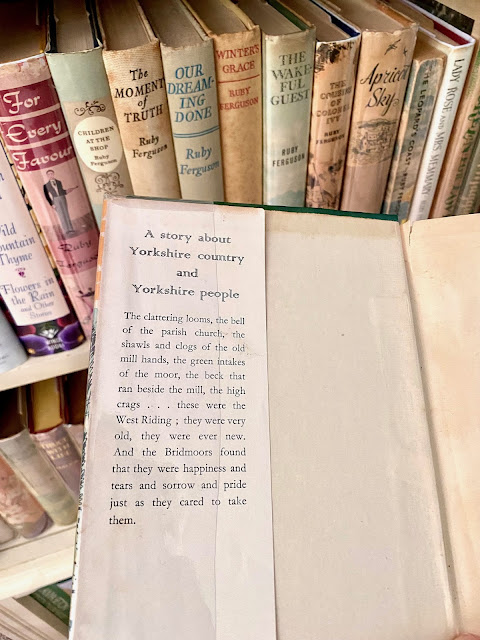 For
Every
Favour
Ruby
CHILDREN
AT THE
SHOP
Ruby
Ferguson
The
MOMENT
of
TRUTH
Ruby
Ferguson
OUR
DREAM-
ING
DONE
Ruby
Ferguson
WINTER'S
GRACE
RUBY
FERGUSON
THE
WAKE-
FUL
GUEST
RUBY
FERGUSON
THE
COUSINS
OF
COLONEL
IVY
RUBY
FERGUSON
Apricot
Sky
THE
LEOPARD'S
COAST
LADY ROSE AND MRS MEMMARY
Wild
Mountain
Thyme
Flowers in
the Rain
and Other
Stories
A story about
Yorkshire country
and
Yorkshire people
The clattering looms, the bell
of the parish church, the
shawls and clogs of the old
mill hands, the green intakes
of the moor, the beck that
ran beside the mill, the high
crags . . . these were the
West Riding ; they were very
old, they were ever new.
And the Bridmoors found
that they were happiness and
tears and sorrow and pride
just as they cared to take
them.